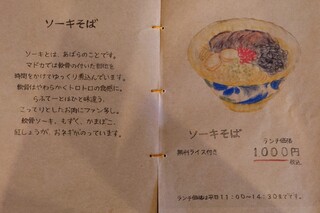 ソーキそば
ソーキとは、あばらのことです。
マドカでは軟骨の付いた部位を
時間をかけてゆっくり煮込んでいます。
軟骨はやわらかくトロトロの食感に。
らふてーとはひと味違う、
こってりとしたお肉にファン多し。
軟骨ソーキ、もずく、かまぼこ、
紅しょうが、おネギがのっています。
ソーキそば
ランチ価格
1000円
税込
ランチ価格は平日11:00〜14:30までです。